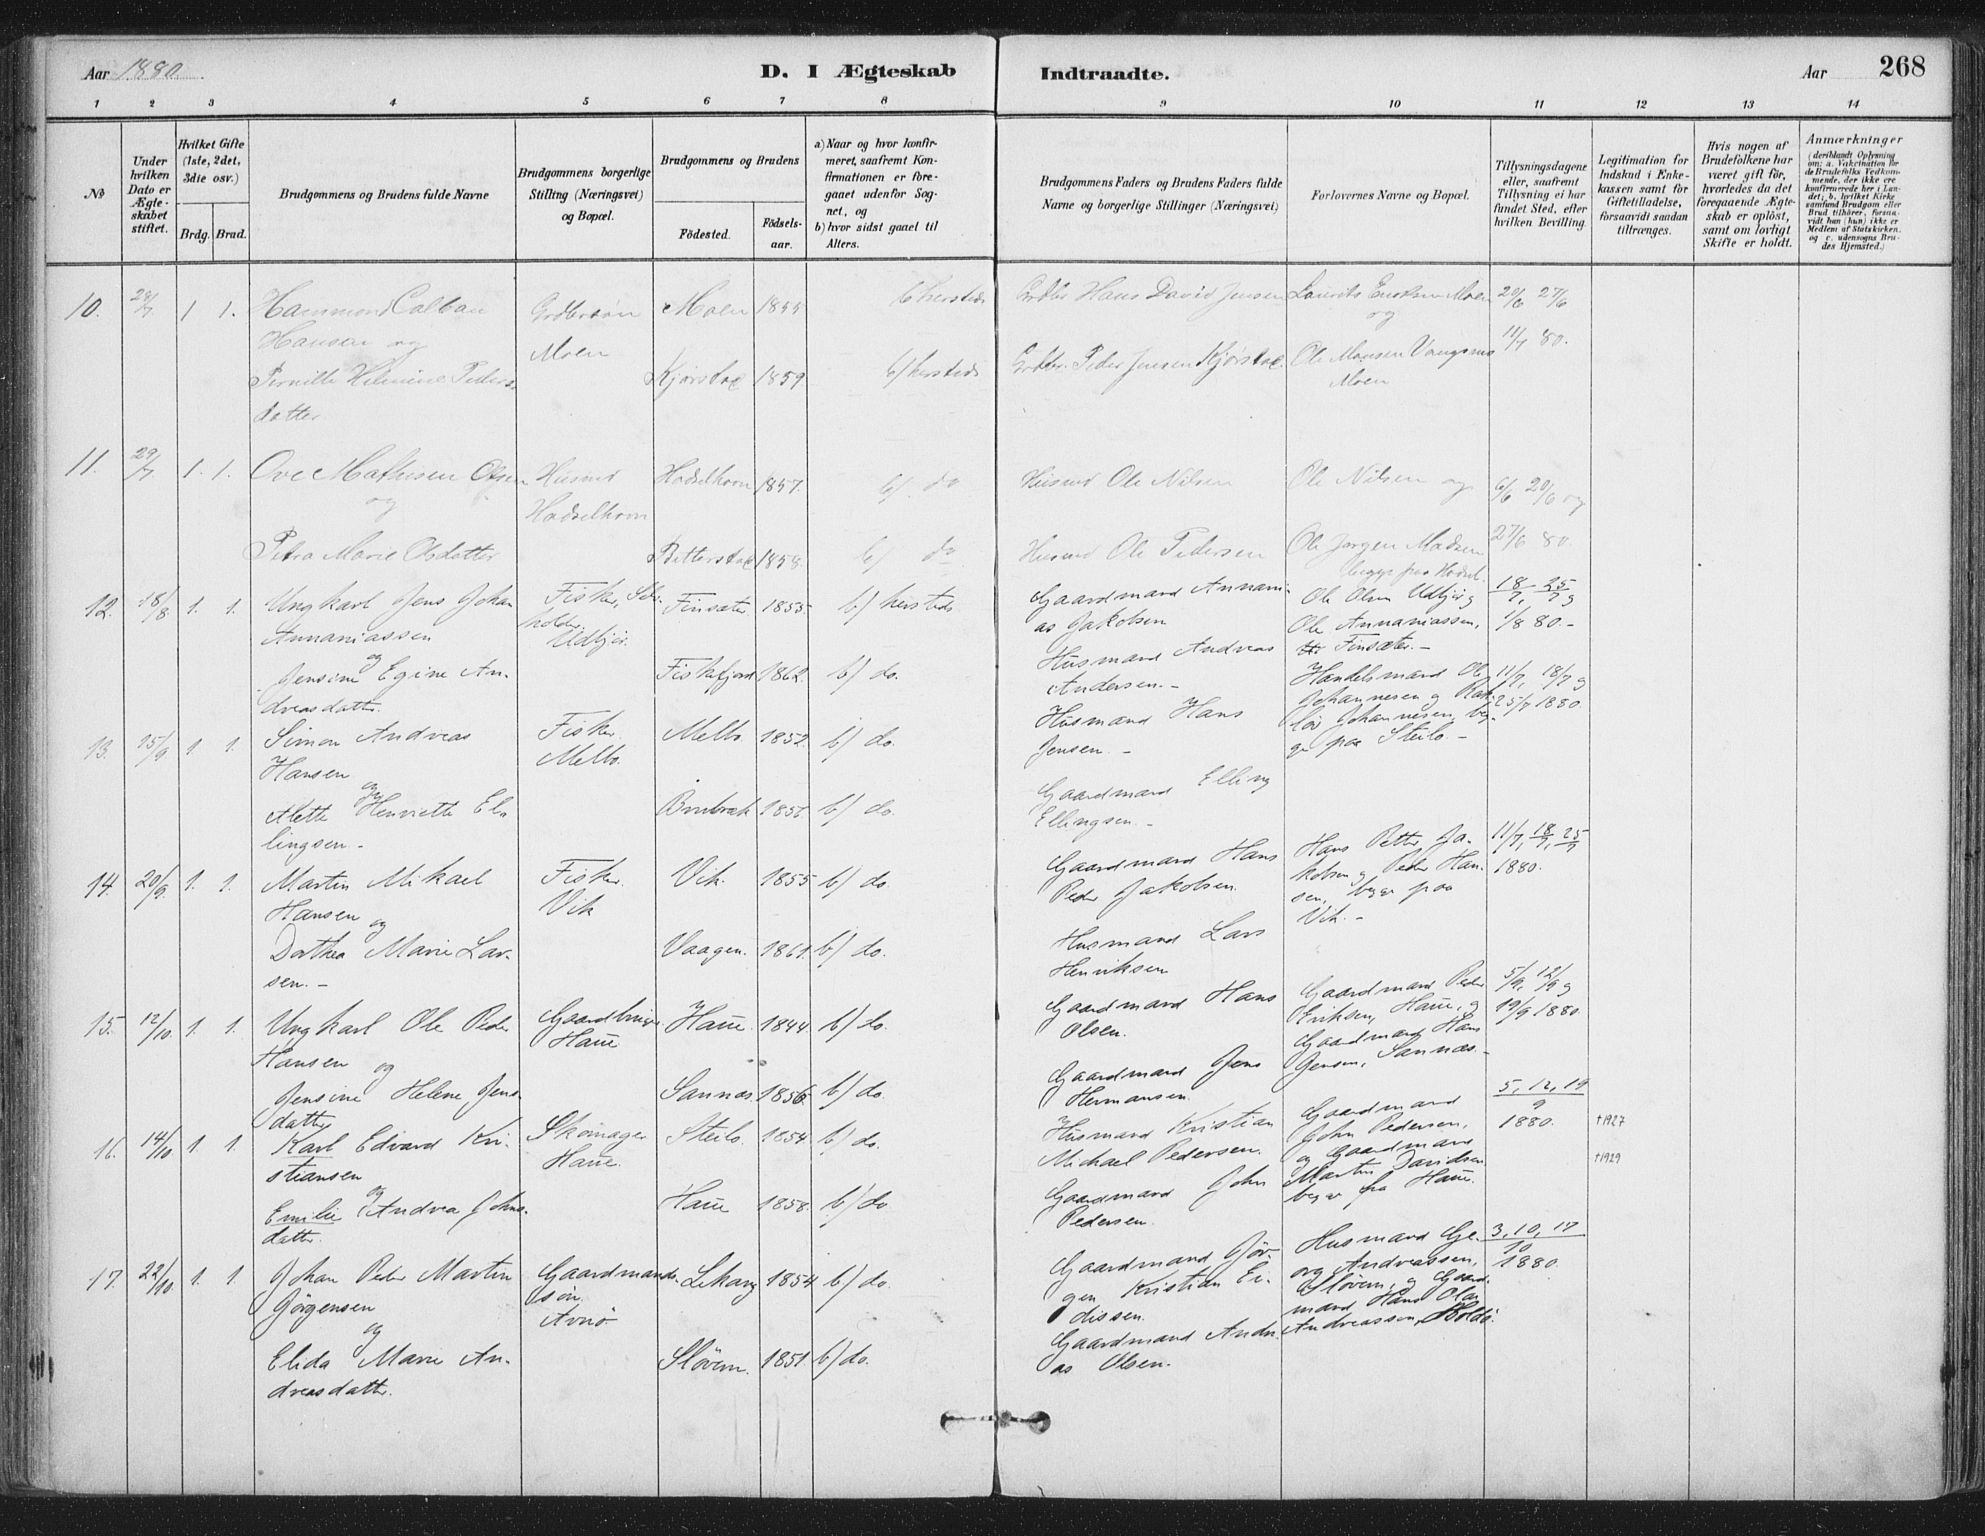 Aar 1880.
D. I Ægteskab
Indtraadte.
Aar
268
1 2 3 4 5 6 7 8 9 10 11 12 13 14
No
Under hvilken Dato er Ægteskabet stiftet.
Hvilket Gifte (1ste, 2det, 3die osv.)
Brdg. Brud.
Brudgommens og Brudens fulde Navne
Brudgommens borgerlige Stilling (Næringsvei) og Bopæl.
Brudgommens og Brudens
Födested.
Födsels-aar.
a) Naar og hvor konfirmeret, saafremt Konfirmationen er foregaaet udenfor Sognet, og
b) hvor sidst gaaet til Alters.
Brudgommens Faders og Brudens Faders fulde Navne og borgerlige Stillinger (Næringsvei)
Forlovernes Navne og Bopæl.
Tillysningsdagene eller, saafremt Tillysning ei har fundet Sted, efter hvilken Bevilling.
Legitimation for Indskud i Enkekassen samt for Giftetilladelse, forsaavidt saadan tiltrænges.
Hvis nogen af Brudefolkene har været gift för, hvorledes da det foregaaende Ægteskab er oplöst, samt om lovligt Skifte er holdt.
Anmærkninger
(deriblandt Oplysning om: a. Vakcination for de Brudefolks Vedkommende, der ikke ere konfirmerede her i Landet; b. hvilket Kirkesamfund Brudgom eller Brud tilhörer, forsaavidt han (hun) ikke er Medlem af Statskirken, og c. udensogns Brudes Hjemsted.)
10. 1 1. Hammond Colban Moen 1855 b) hersteds Hans David Jensen Laurits Moen 20/6 27/6
Hansen og Moen og 11/7 80.
Pernille Peders- Kjørstad 1859 b) hersteds Peder Jensen Kjørstad. Ole Monsen
datter Moen
11. 29/7 1. 1. Ove Mathisen Olsen Husmd Hadselhavn 1857. b) do Husmd Ole Nilsen Ole Nilsen og 6/6 20/6 og
og Hadselhavn
Petra Marie Olsdatter Bitterstad 1858 b) do Husmd Ole Pedersen Ole Jørgen Madsen 27/6 80.
12. 18/8 1. 1. Ungkarl Jens Johan Fisker, Finsæter 1855 b) hersteds Gaardmand Annani- Ole Olsen og 18/7, 25/7 og
Annaniassen as Jakobsen Ole Annaniassen, 1/8 80.-
og Husmand Andreas Finsæter.-
Jensine Egine An- Fiskfjord 1862. b) do. Andersen.- Handelsmand Ole 11/7, 18/7 og
dreasdatter. Johannesen og 25/7 1880.
13. 15/9 1. 1. Simon Andreas Fisker. Melbo 1852. b) do. Husmand Hans Johannesen, beg-
Hansen Melbo. Jensen.- ge paa Steilo.-
og
Alette Henriette El- b) do. Gaardmand Elling
lingsen.- Ellingsen.-
14. 20/9. 1. 1. Martin Mikael Fisker. Vik. 1855. b) do. Gaardmand Hans Hans Petter Ja- 11/7, 18/7, 25/7
Hansen Vik Peder Jakobsen. kobsen og Peder Han- 1880.
og sen, begge paa
Dorthea Marie Lar- Vaagen. 1861. b) do. Husmand Lars Vik.-
sen.- Henriksen
15. 12/10. 1. 1. Ungkarl Ole Peder Gaardbruger Haue. 1844. b) do. Gaardmand Hans Gaardmand Peder 5/9, 12/9 og
Hansen Haue Olsen. Eriksen, Haue, og 19/9 1880.
og Gaardmand Hans
Jensine Helene Jens- Sannæs. 1856. b) do. Gaardmand Jens Jensen, Sannæs.-
datter Hermansen.
16. 14/10 1. 1. Karl Edvard Kri- Skomager Steilo. 1854. b) do. Husmand Kristian Gaardmand 5, 12, 19/9 1880. †1927
stiansen Haue. Michael Pedersen. John Pedersen,
og og Gaardmand †1929
Emilie Andrea Johns- Haue 1858. b) do Gaardmand John Martin Davidsen
datter. Pedersen. begge fra Haue.
17. 22/10. 1. 1. Johan Peder Martin Gaardmands- Lekang 1854 b) do. Gaardmand Jör- Husmand Ge- 3, 10, 17/10 1880.
Jørgensen søn. gen Kristian Ei- org Andreassen,
og Avnö dissen. Sløveren, og Gaard-
mand Hans Olai
Elida Marie An- Sløveren. 1851. b) do. Gaardmand Andre- Andreassen, Holdö.
dreasdatter. as Olsen.